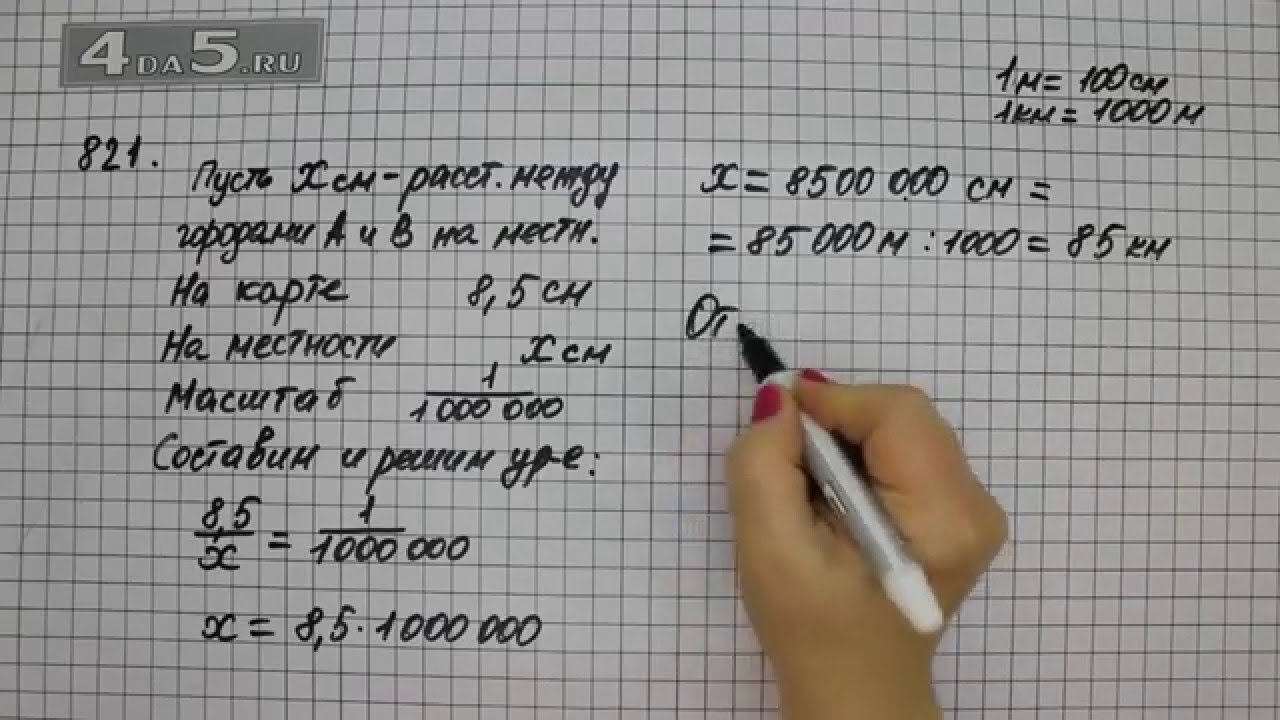 4DA5.RU
1м = 100 см
1км = 1000 м
821.
Пусть X см - расст. между
городами А и В на местн.
На карте 8,5 см
На местности X см
Масштаб 1/1000 000
Составим и решим ур-е:
8,5/x = 1/1000 000
x = 8,5 · 1000 000
x = 8500 000 см =
= 85 000 м : 1000 = 85 км
От